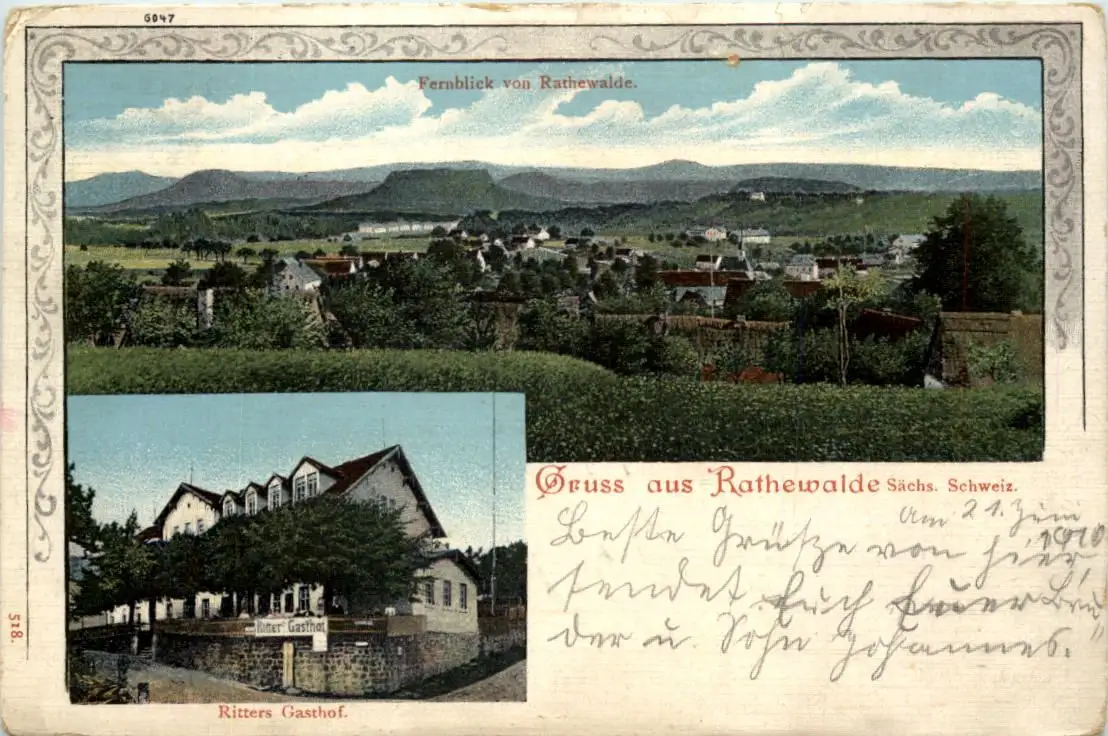 6047
Fernblick von Rathewalde.
Ritter's Gasthof
Ritters Gasthof.
518.
Gruss aus Rathewalde Sächs. Schweiz.
Am 21. Juni
1910
Beste Grüsze von hier,
sendet Euch Euer Bru„
der u. Sohn Johannes.